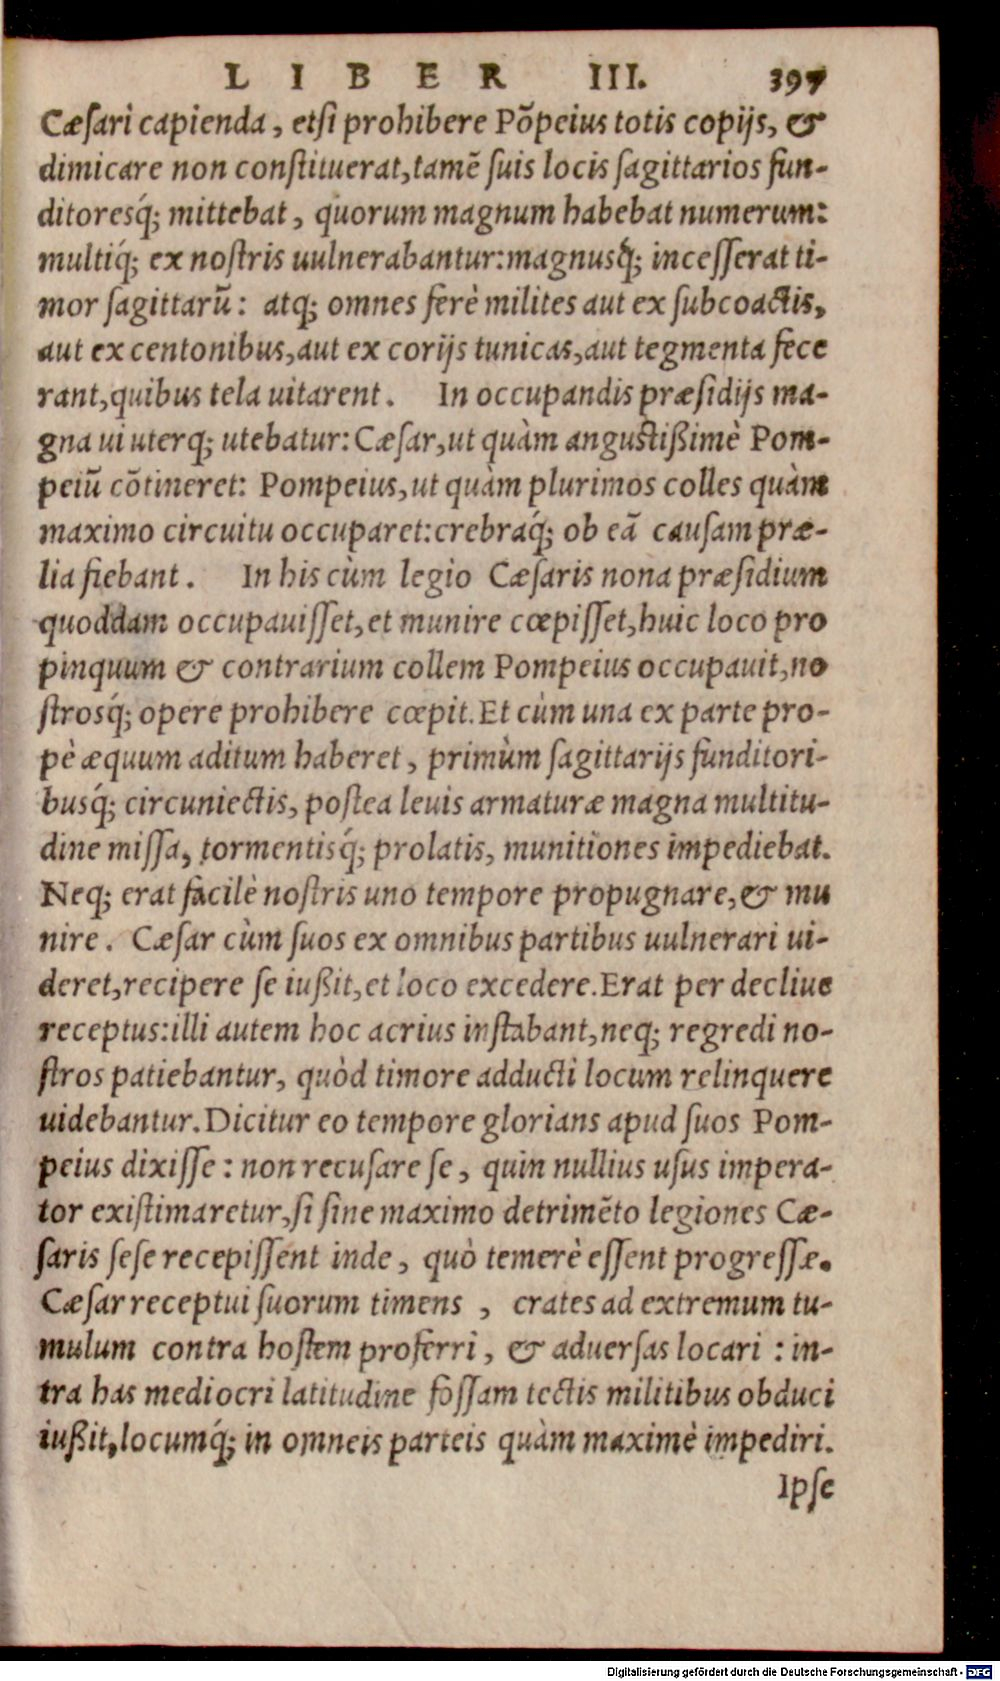 LIBER III. 397
Cæſari capienda, etſi prohibere Põpeius totis copijs, &
dimicare non conſtituerat, tamẽ ſuis locis ſagittarios fun-
ditoresq́; mittebat, quorum magnum habebat numerum:
multiq́; ex noſtris uulnerabantur: magnusq́; inceſſerat ti-
mor ſagittarũ: atq; omnes ferè milites aut ex ſubcoactis,
aut ex centonibus, aut ex corijs tunicas, aut tegmenta fece
rant, quibus tela uitarent. In occupandis præſidijs ma-
gna ui uterq; utebatur: Cæſar, ut quàm anguſtißimè Pom-
peiũ cõtineret: Pompeius, ut quàm plurimos colles quàm
maximo circuitu occuparet: crebraq́; ob eã cauſam præ-
lia fiebant. In his cùm legio Cæſaris nona præſidium
quoddam occupauiſſet, et munire cœpiſſet, huic loco pro
pinquum & contrarium collem Pompeius occupauit, no
ſtrosq́; opere prohibere cœpit. Et cùm una ex parte pro-
pè æquum aditum haberet, primùm ſagittarijs funditori-
busq́; circuniectis, poſtea leuis armaturæ magna multitu-
dine miſſa, tormentisq́; prolatis, munitiones impediebat.
Neq; erat facilè noſtris uno tempore propugnare, & mu
nire. Cæſar cùm ſuos ex omnibus partibus uulnerari ui-
deret, recipere ſe iußit, et loco excedere. Erat per decliue
receptus: illi autem hoc acrius inſtabant, neq; regredi no-
ſtros patiebantur, quòd timore adducti locum relinquere
uidebantur. Dicitur eo tempore glorians apud ſuos Pom-
peius dixiſſe: non recuſare ſe, quin nullius uſus impera-
tor exiſtimaretur, ſi ſine maximo detrimẽto legiones Cæ-
ſaris ſeſe recepiſſent inde, quò temerè eſſent progreſſæ.
Cæſar receptui ſuorum timens, crates ad extremum tu-
mulum contra hoſtem proferri, & aduerſas locari: in-
tra has mediocri latitudine foſſam tectis militibus obduci
iußit, locumq́; in omneis parteis quàm maximè impediri.
Ipſe
Digitalisierung gefördert durch die Deutsche Forschungsgemeinschaft - DFG